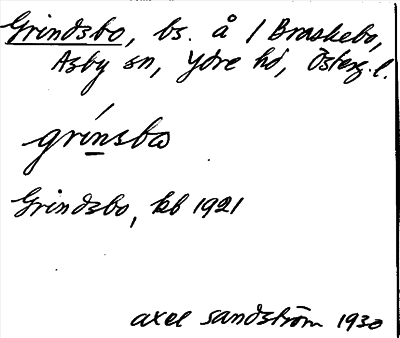 Grindsbo, bs. å 1 Braskebo,
Asby sn, Ydre hd, Österg. l.
grínsbω
Grindsbo, kb 1921
axel sandström 1930